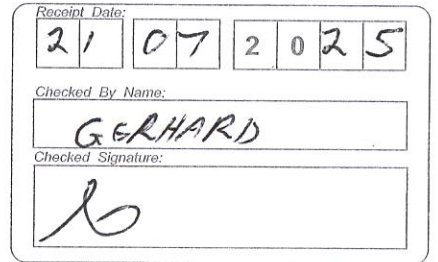 Receipt Date:
21 07 2025
Checked By Name:
GERHARD
Checked Signature: